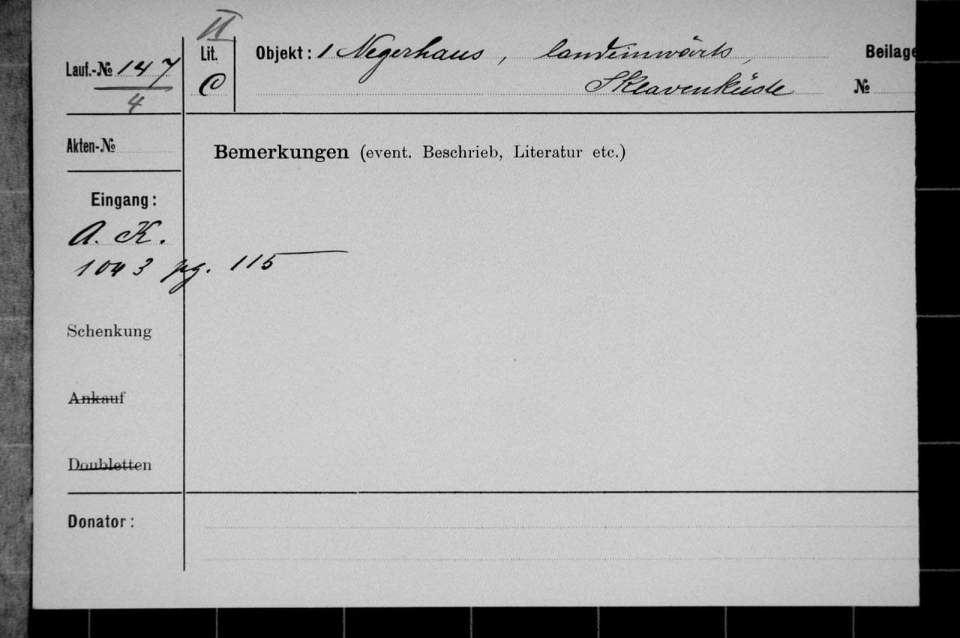 II
Lauf.-№ 147
4
Lit.
C
Objekt: 1 Negerhaus, landeinwärts,
Sklavenküste
Beilage
№
Akten-№
Bemerkungen (event. Beschrieb, Literatur etc.)
Eingang:
A. K.
1043 pg. 115
Schenkung
Ankauf
Doubletten
Donator: